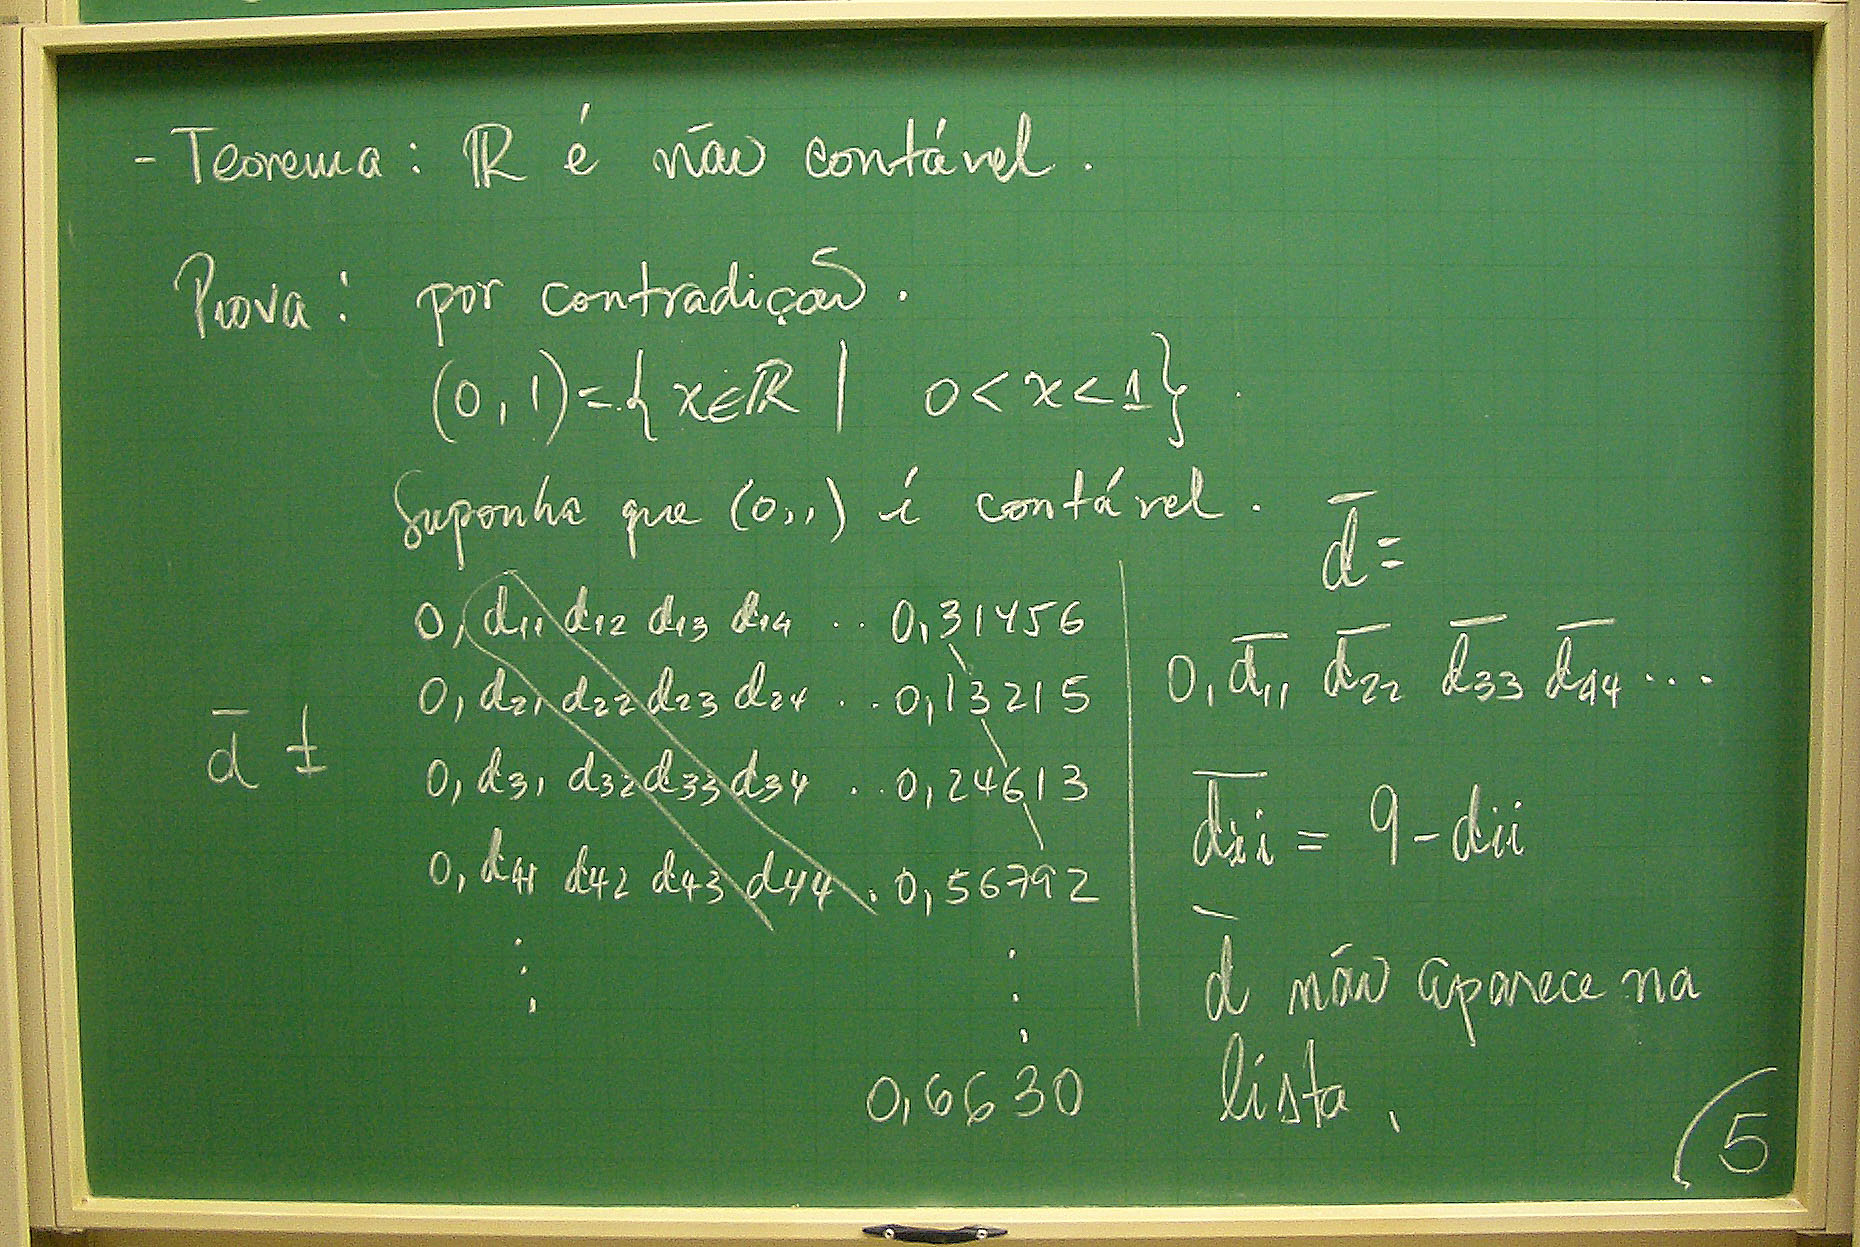 - Teorema: ℝ é não contável.
Prova: por contradição.
(0,1) = { x ∈ ℝ | 0 < x < 1 }.
Suponha que (0,1) é contável.
0, d11 d12 d13 d14 .. 0,31456
0, d21 d22 d23 d24 .. 0,13215
0, d31 d32 d33 d34 .. 0,24613
0, d41 d42 d43 d44 . 0,56792
⋮ ⋮
0,6630
d̄ ≠
d̄ =
0, d̄11 d̄22 d̄33 d̄44 ...
d̄ii = 9 - dii
d̄ não aparece na
lista.
5